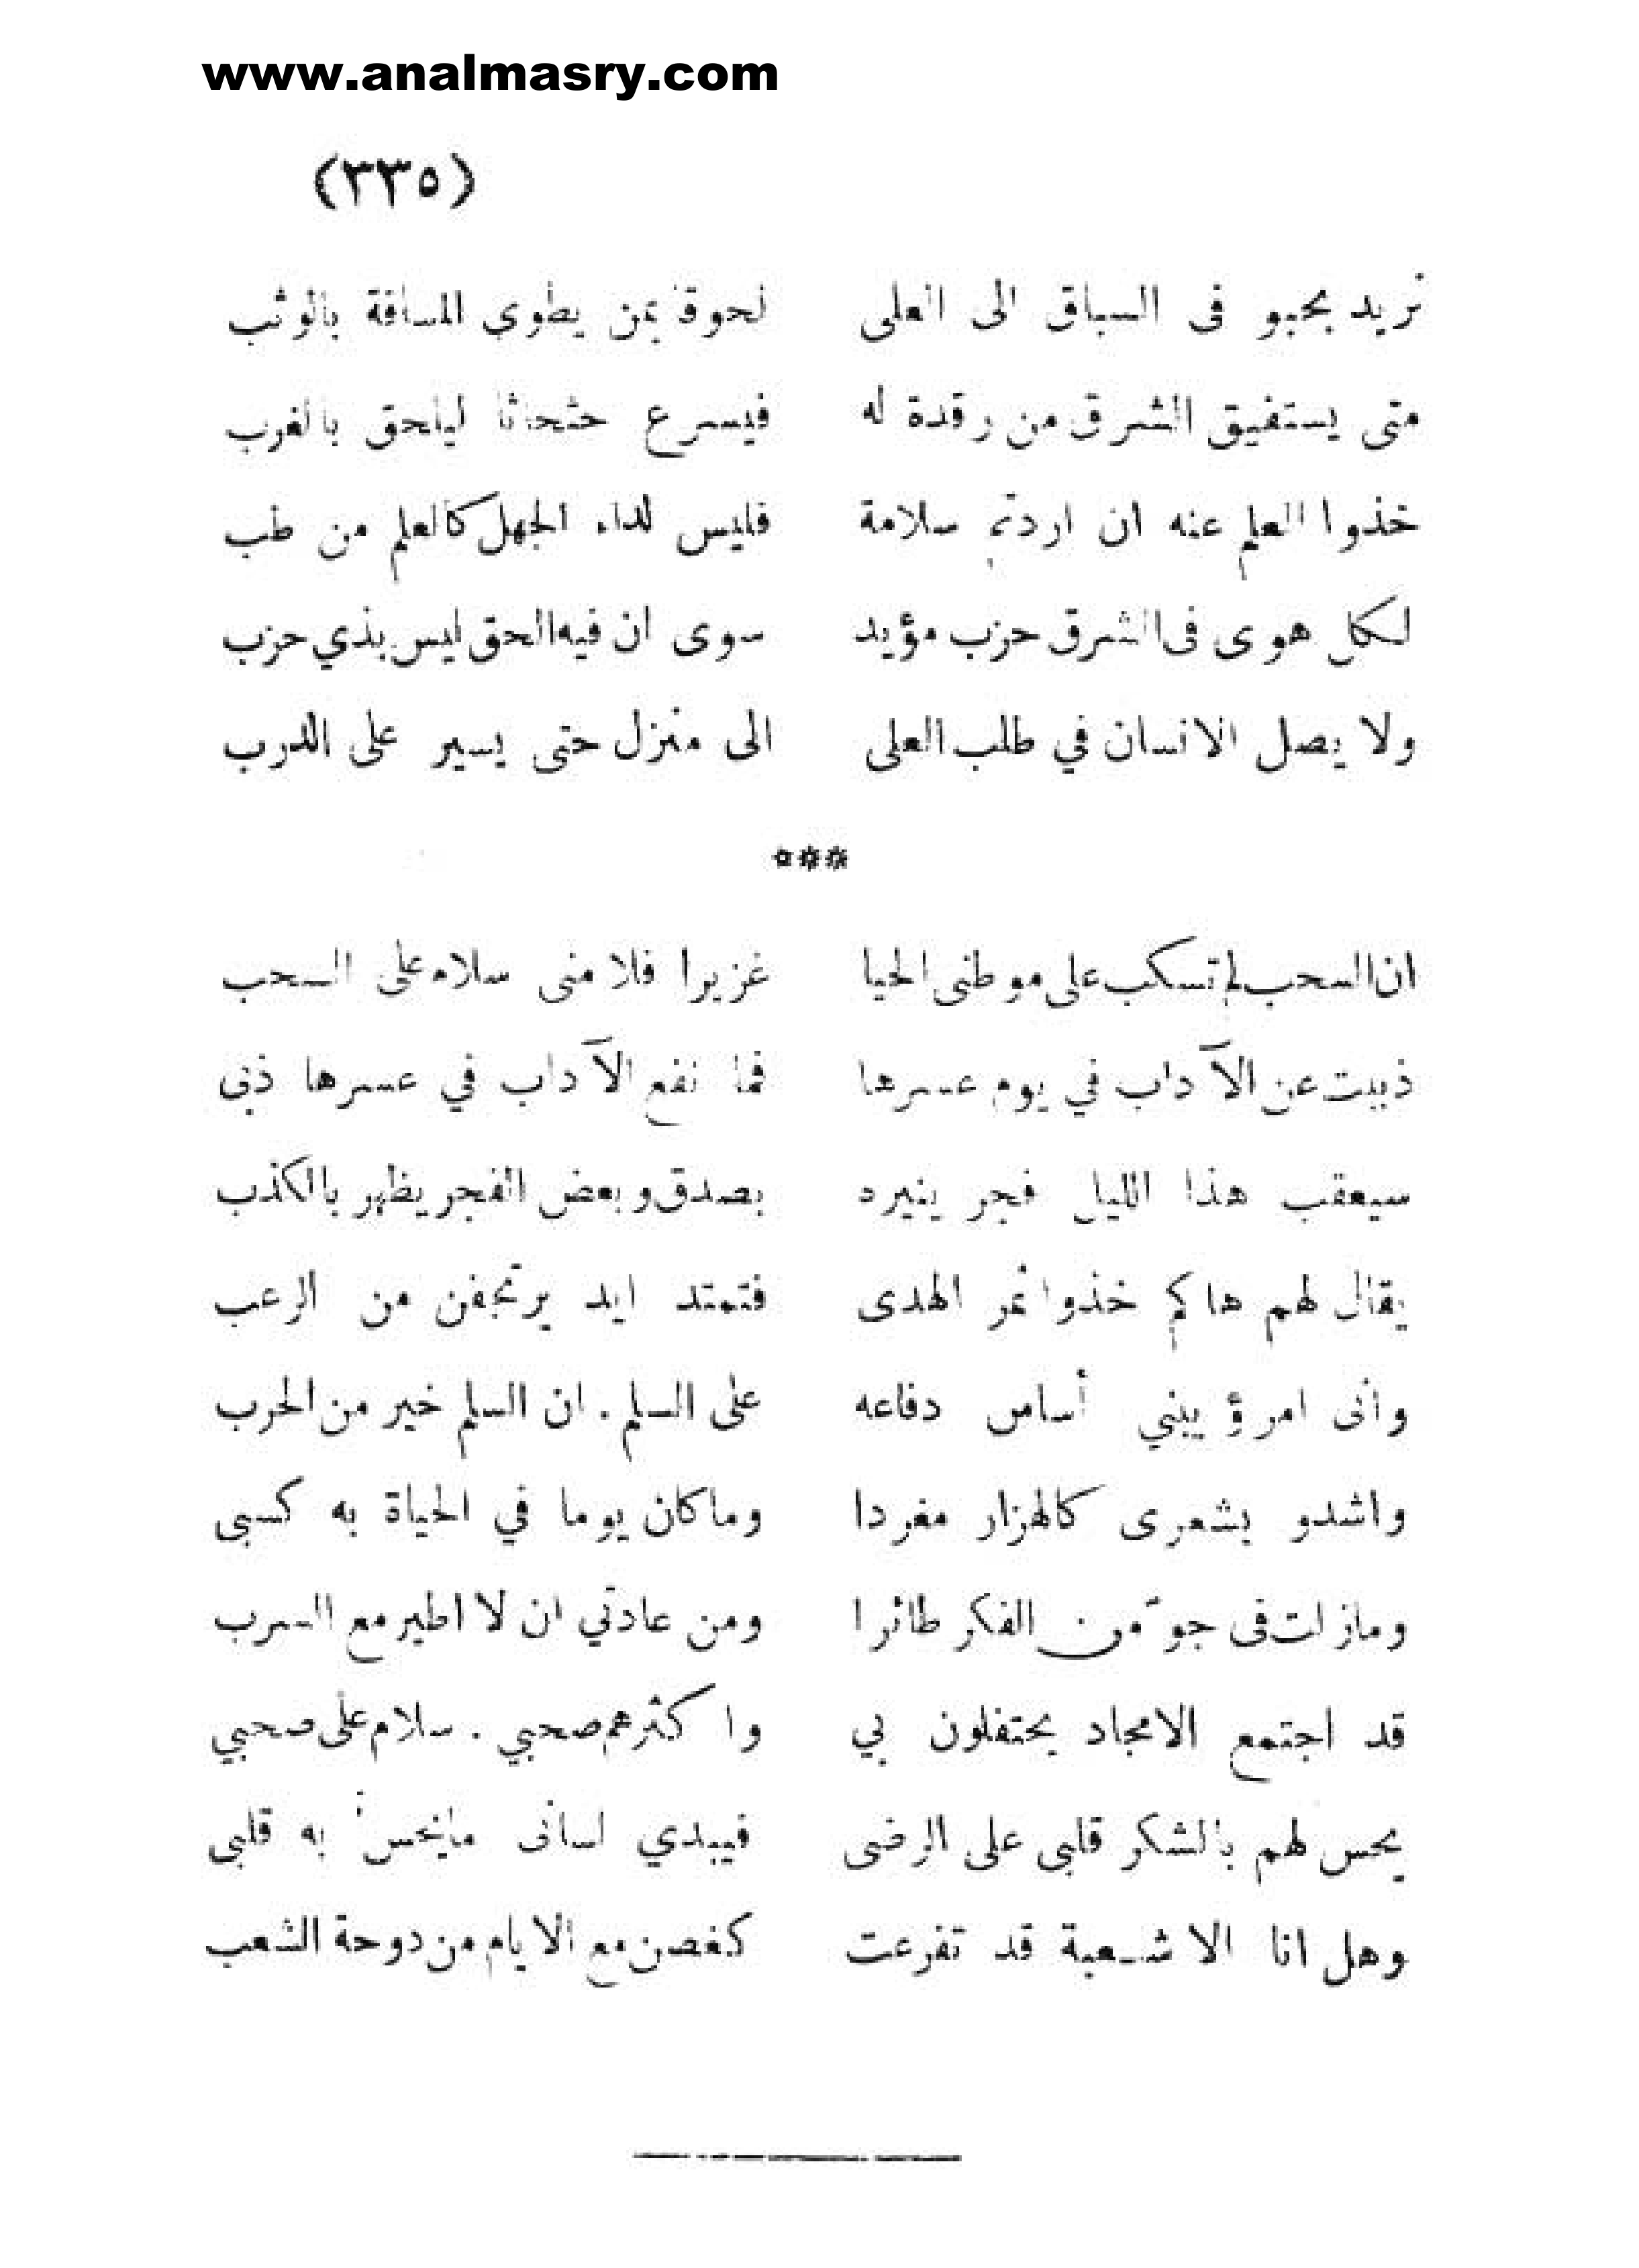 www.analmasry.com
(٣٣٥)
نريد بحبو فى السباق الى العلى لحوقا بمن يطوي المسافة بالوثب
متى يستفيق الشرق من رقدة له فيسرع حثحاثا ليلحق بالغرب
خذوا العلم عنه ان اردتم سلامة فليس لداء الجهل كالعلم من طب
لكل هوى فى الشرق حزب مؤيد سوى ان فيه الحق ليس بذي حزب
ولا يصل الانسان في طلب العلى الى منزل حتى يسير على الدرب
***
ان السحب لم تسكب على موطنى الحيا غزيرا فلا منى سلام على السحب
ذببت عن الآداب في يوم عسرها فما نفع الآداب في عسرها ذبى
سيعقب هذا الليل فجر ينيره بصدق وبعض الفجر يظهر بالكذب
يقال لهم هاكم خذوا ثمر الهدى فتمتد ايد يرتجفن من الرعب
وأنى امرؤ يبني أساس دفاعه على السلم . ان السلم خير من الحرب
واشدو بشعرى كالهزار مغردا وما كان يوما في الحياة به كسبى
ومازلت فى جوّ من الفكر طائرا ومن عادتي ان لا اطير مع السرب
قد اجتمع الامجاد يحتفلون بي واكثرهم صحبي . سلام على صحبي
يحس لهم بالشكر قلبى على الرضى فيبدي لسانى مايحس به قلبى
وهل انا الا شعبة قد تفرعت كغصن مع الايام من دوحة الشعب